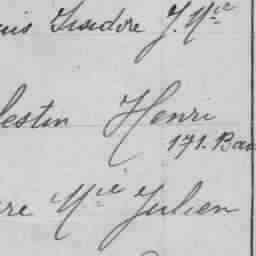 uis Isidore J. Mie
lestin Henri
171. Bou
re Mie Julien